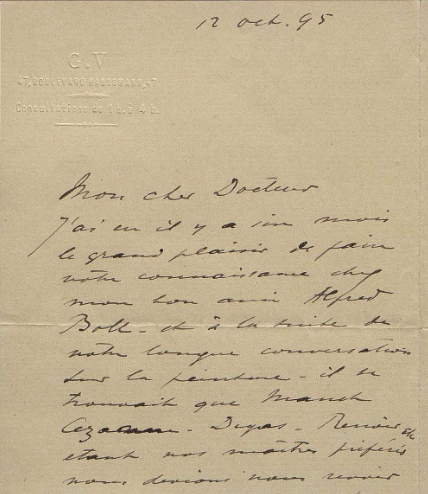 12 oct. 95
G. V
47, BOULEVARD HAUSSMANN, 47
Consultations de 1 h. à 4 h.
Mon cher Docteur
J'ai eu il y a six mois
le grand plaisir de faire
votre connaissance chez
mon bon ami Alfred
Boll - et à la suite de
notre longue conversation
sur la peinture - il se
trouvait que Manet
Cezanne - Degas - Renoir etc
etant nos maîtres préférés
nous devions nous revoir